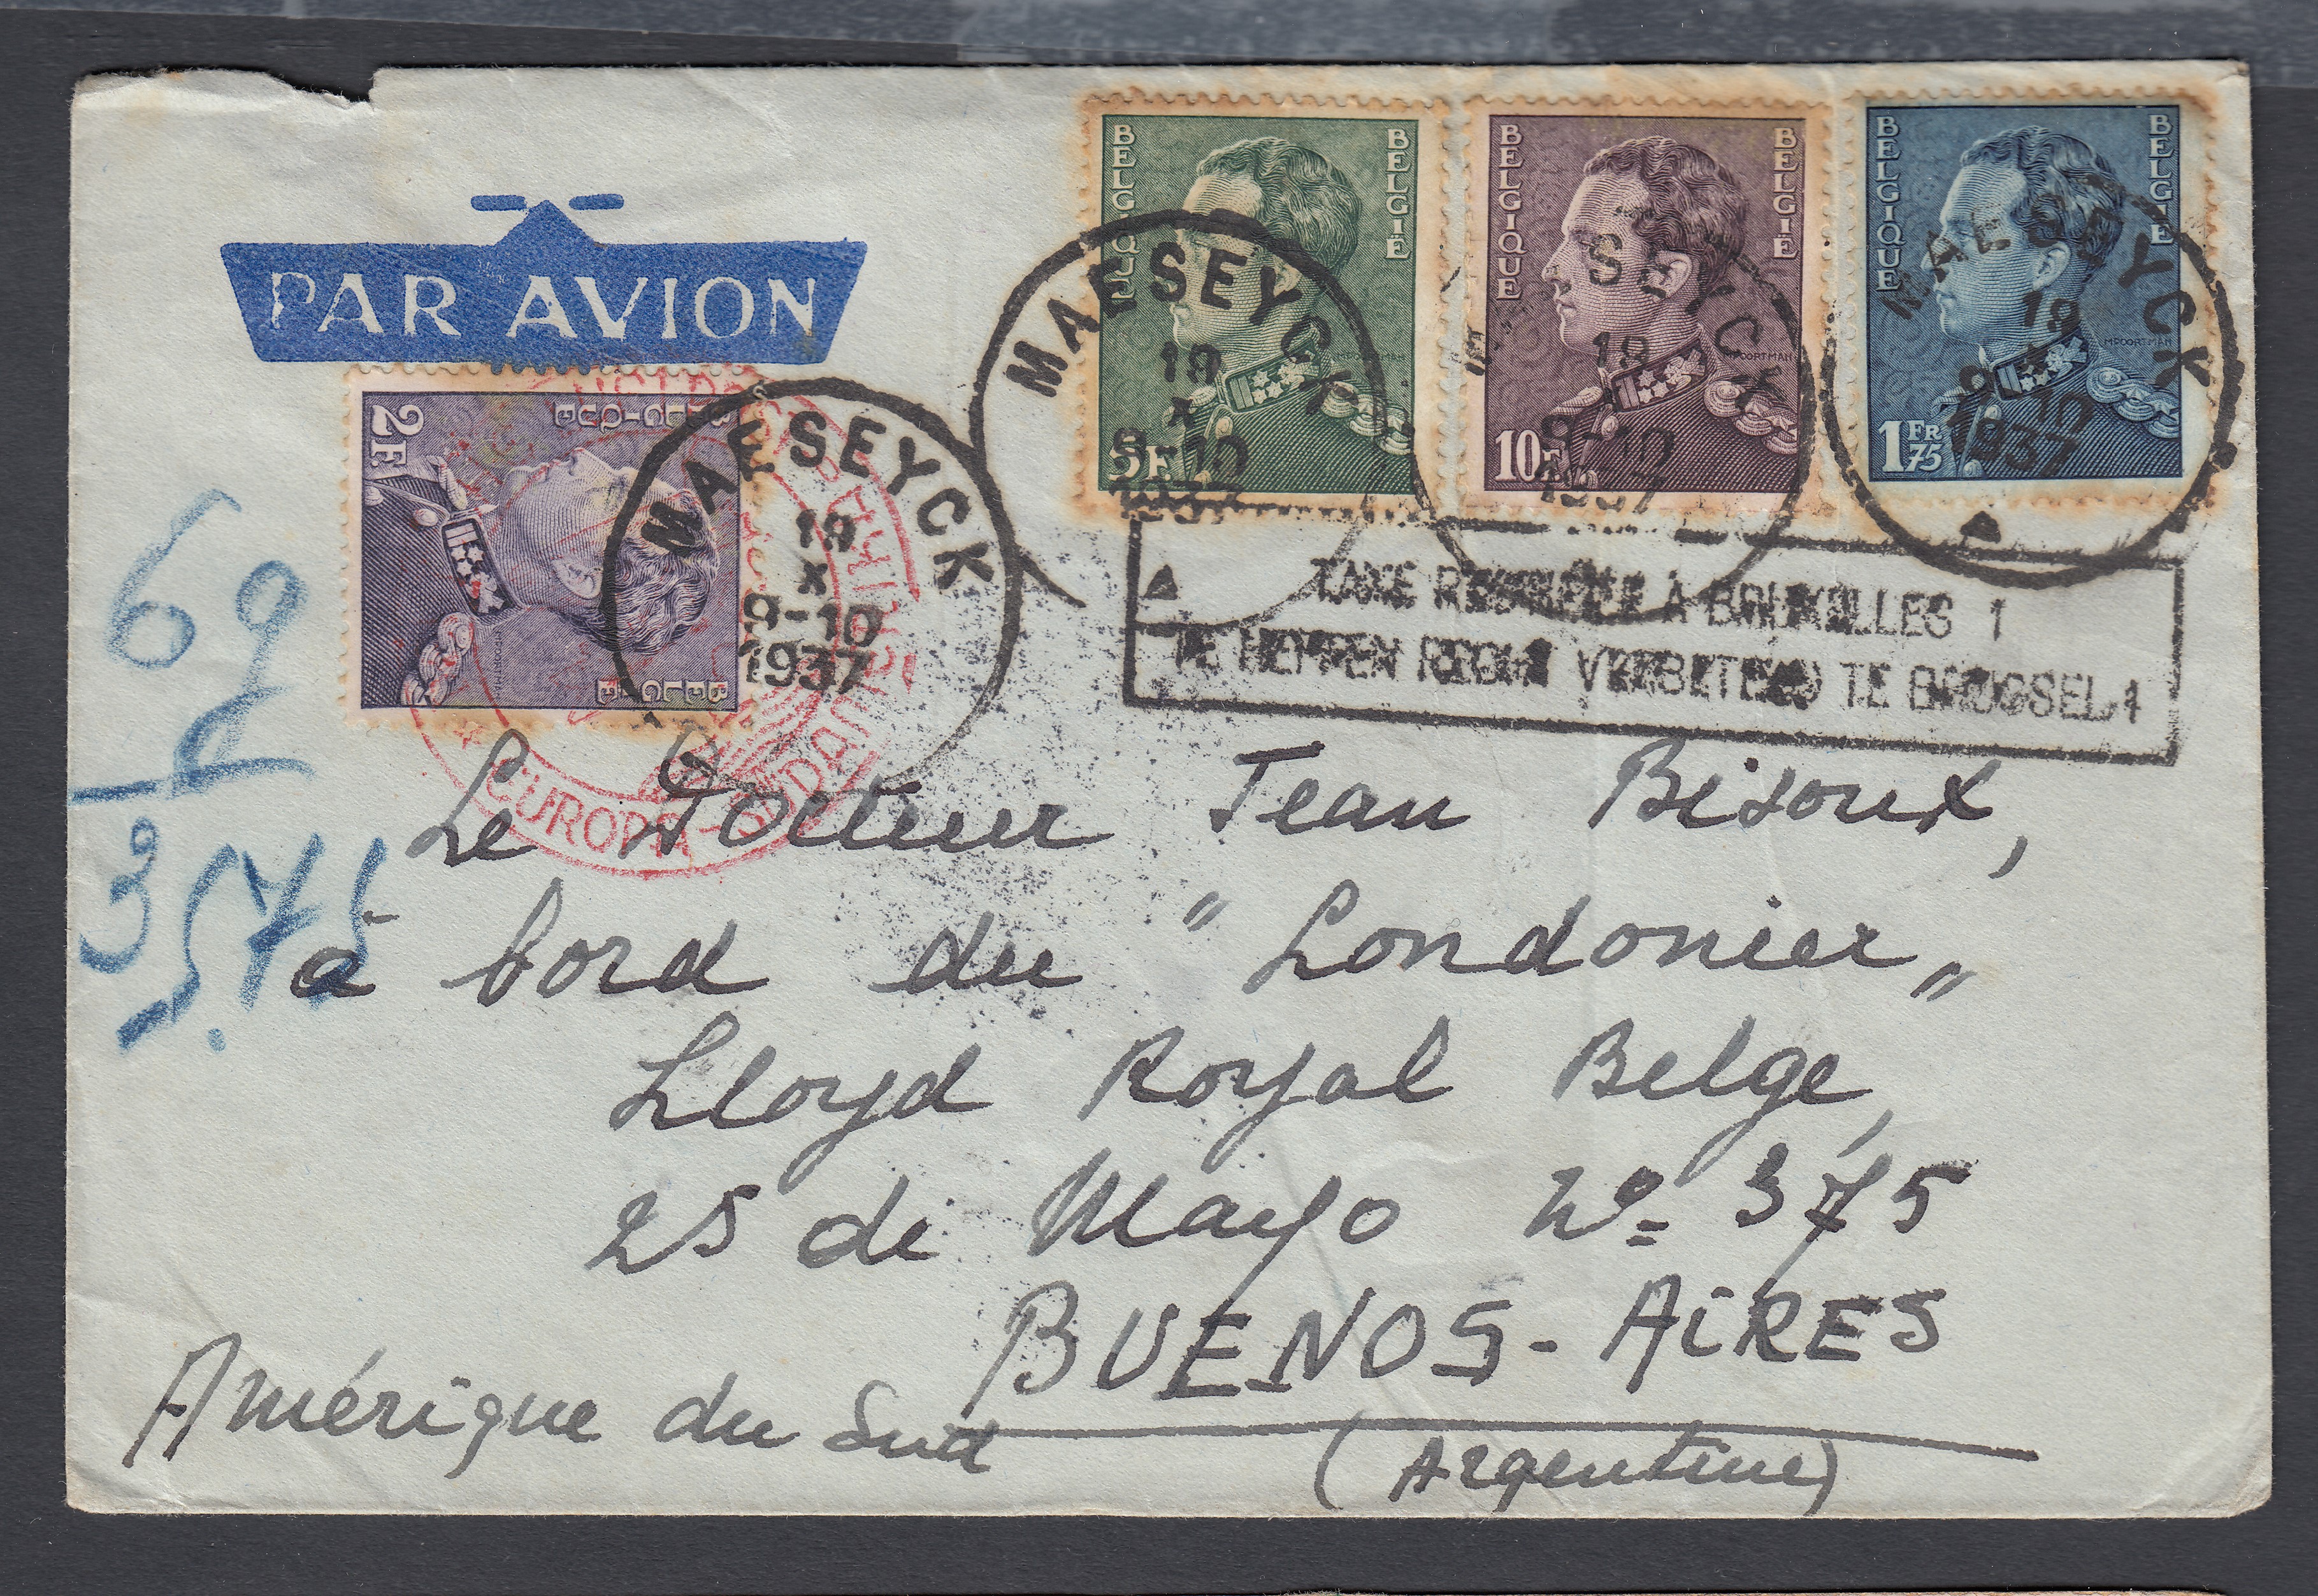 PAR AVION
BELGIQUE BELGIË
5F
MAESEYCK
19
X
9-10
1937
BELGIQUE BELGIË
10F
SEYCK
19
9-10
1937
BELGIQUE BELGIË
1FR75
MAESEYCK
19
X
9-10
1937
2F.
BELGIQUE
BELGIË
MAESEYCK
19
X
9-10
1937
EUROPA-SÜDAMERIKA
TAXE A BRUXELLES 1
TE HEFFEN RECHT VERBETERD TE BRUSSEL 1
6
9
2
35.75
Le Docteur Jean Bisoux,
à bord du "Londonier"
Lloyd Royal Belge,
25 de Mayo No 375
BUENOS-AiRES
Amérique du Sud
(Argentine)